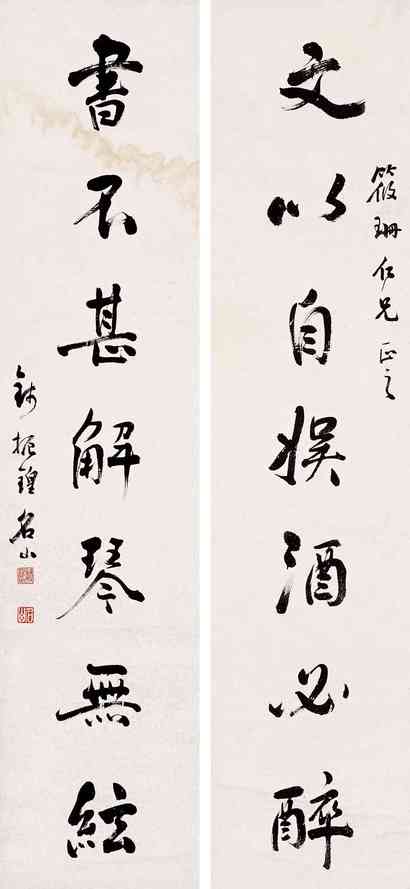 筱珊仁兄正之
文以自娱酒必醉
書不甚解琴無絃
錢振鍠名山